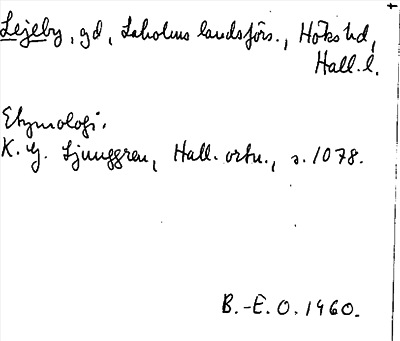 Lejeby, gd, Laholms landsförs., Höks hd,
Hall. l.
Etymologi.
K. G. Ljunggren, Hall. ortn., s. 1078.
B.-E. O. 1960.